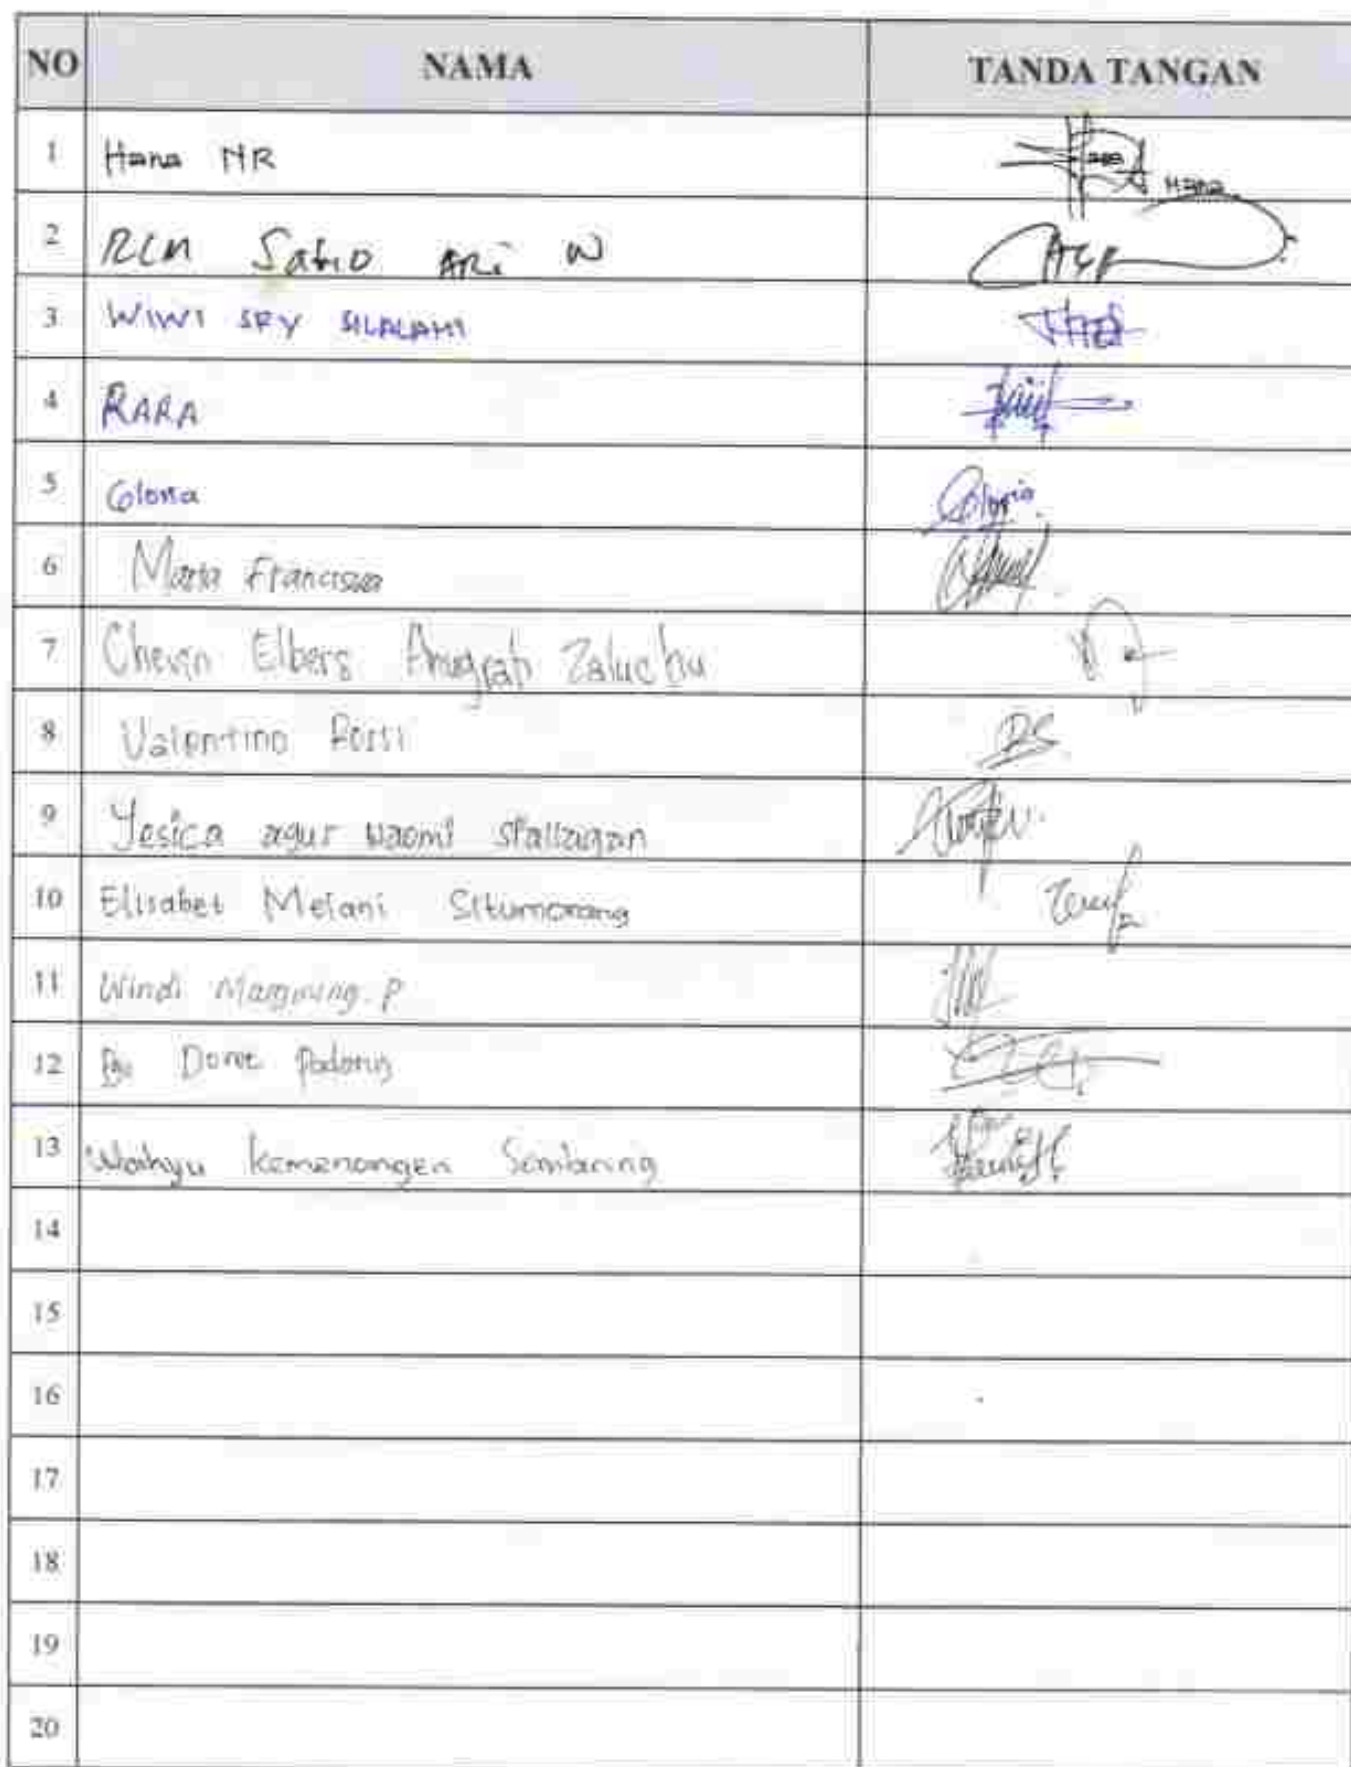 NO NAMA TANDA TANGAN
1 Hana NR Hana
2 RCM Satrio ARi W
3 WIWI SRY SILALAHI
4 RARA
5 Gloria Gloria
6 Maria Francisca
7 Chevin Elbers Anugrah Zaluchu
8 Valentino Rossi
9 Yesica agus Naomi siallagan
10 Elisabet Melani Situmorang
11 Windi Margining. P
12 Doni Padang
13 Wahyu kemenangen Sembiring
14
15
16
17
18
19
20